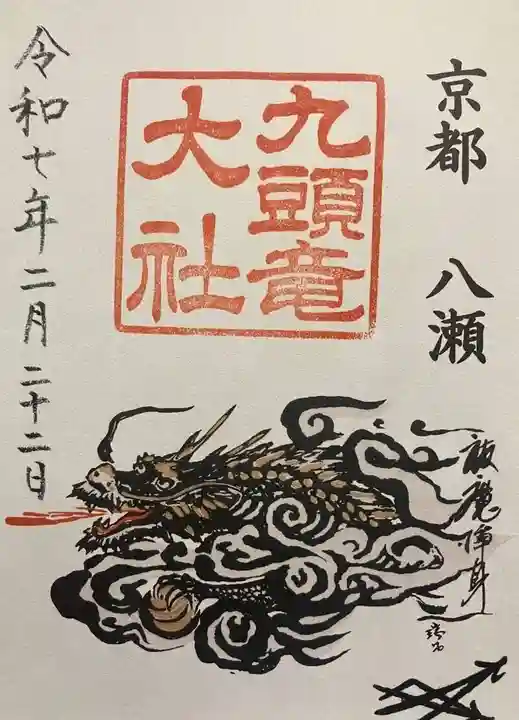 京都 八瀬
九頭竜
大社
令和七年二月二十二日